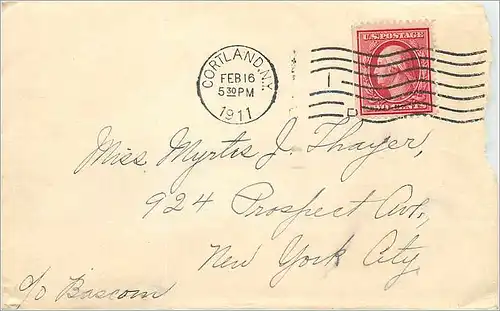 CORTLAND, N.Y.
FEB 16
5 30 PM
1911
U.S. POSTAGE
TWO CENTS
Miss. Myrtis J. Thayer,
924 Prospect Ave.,
New York City
c/o Bascom